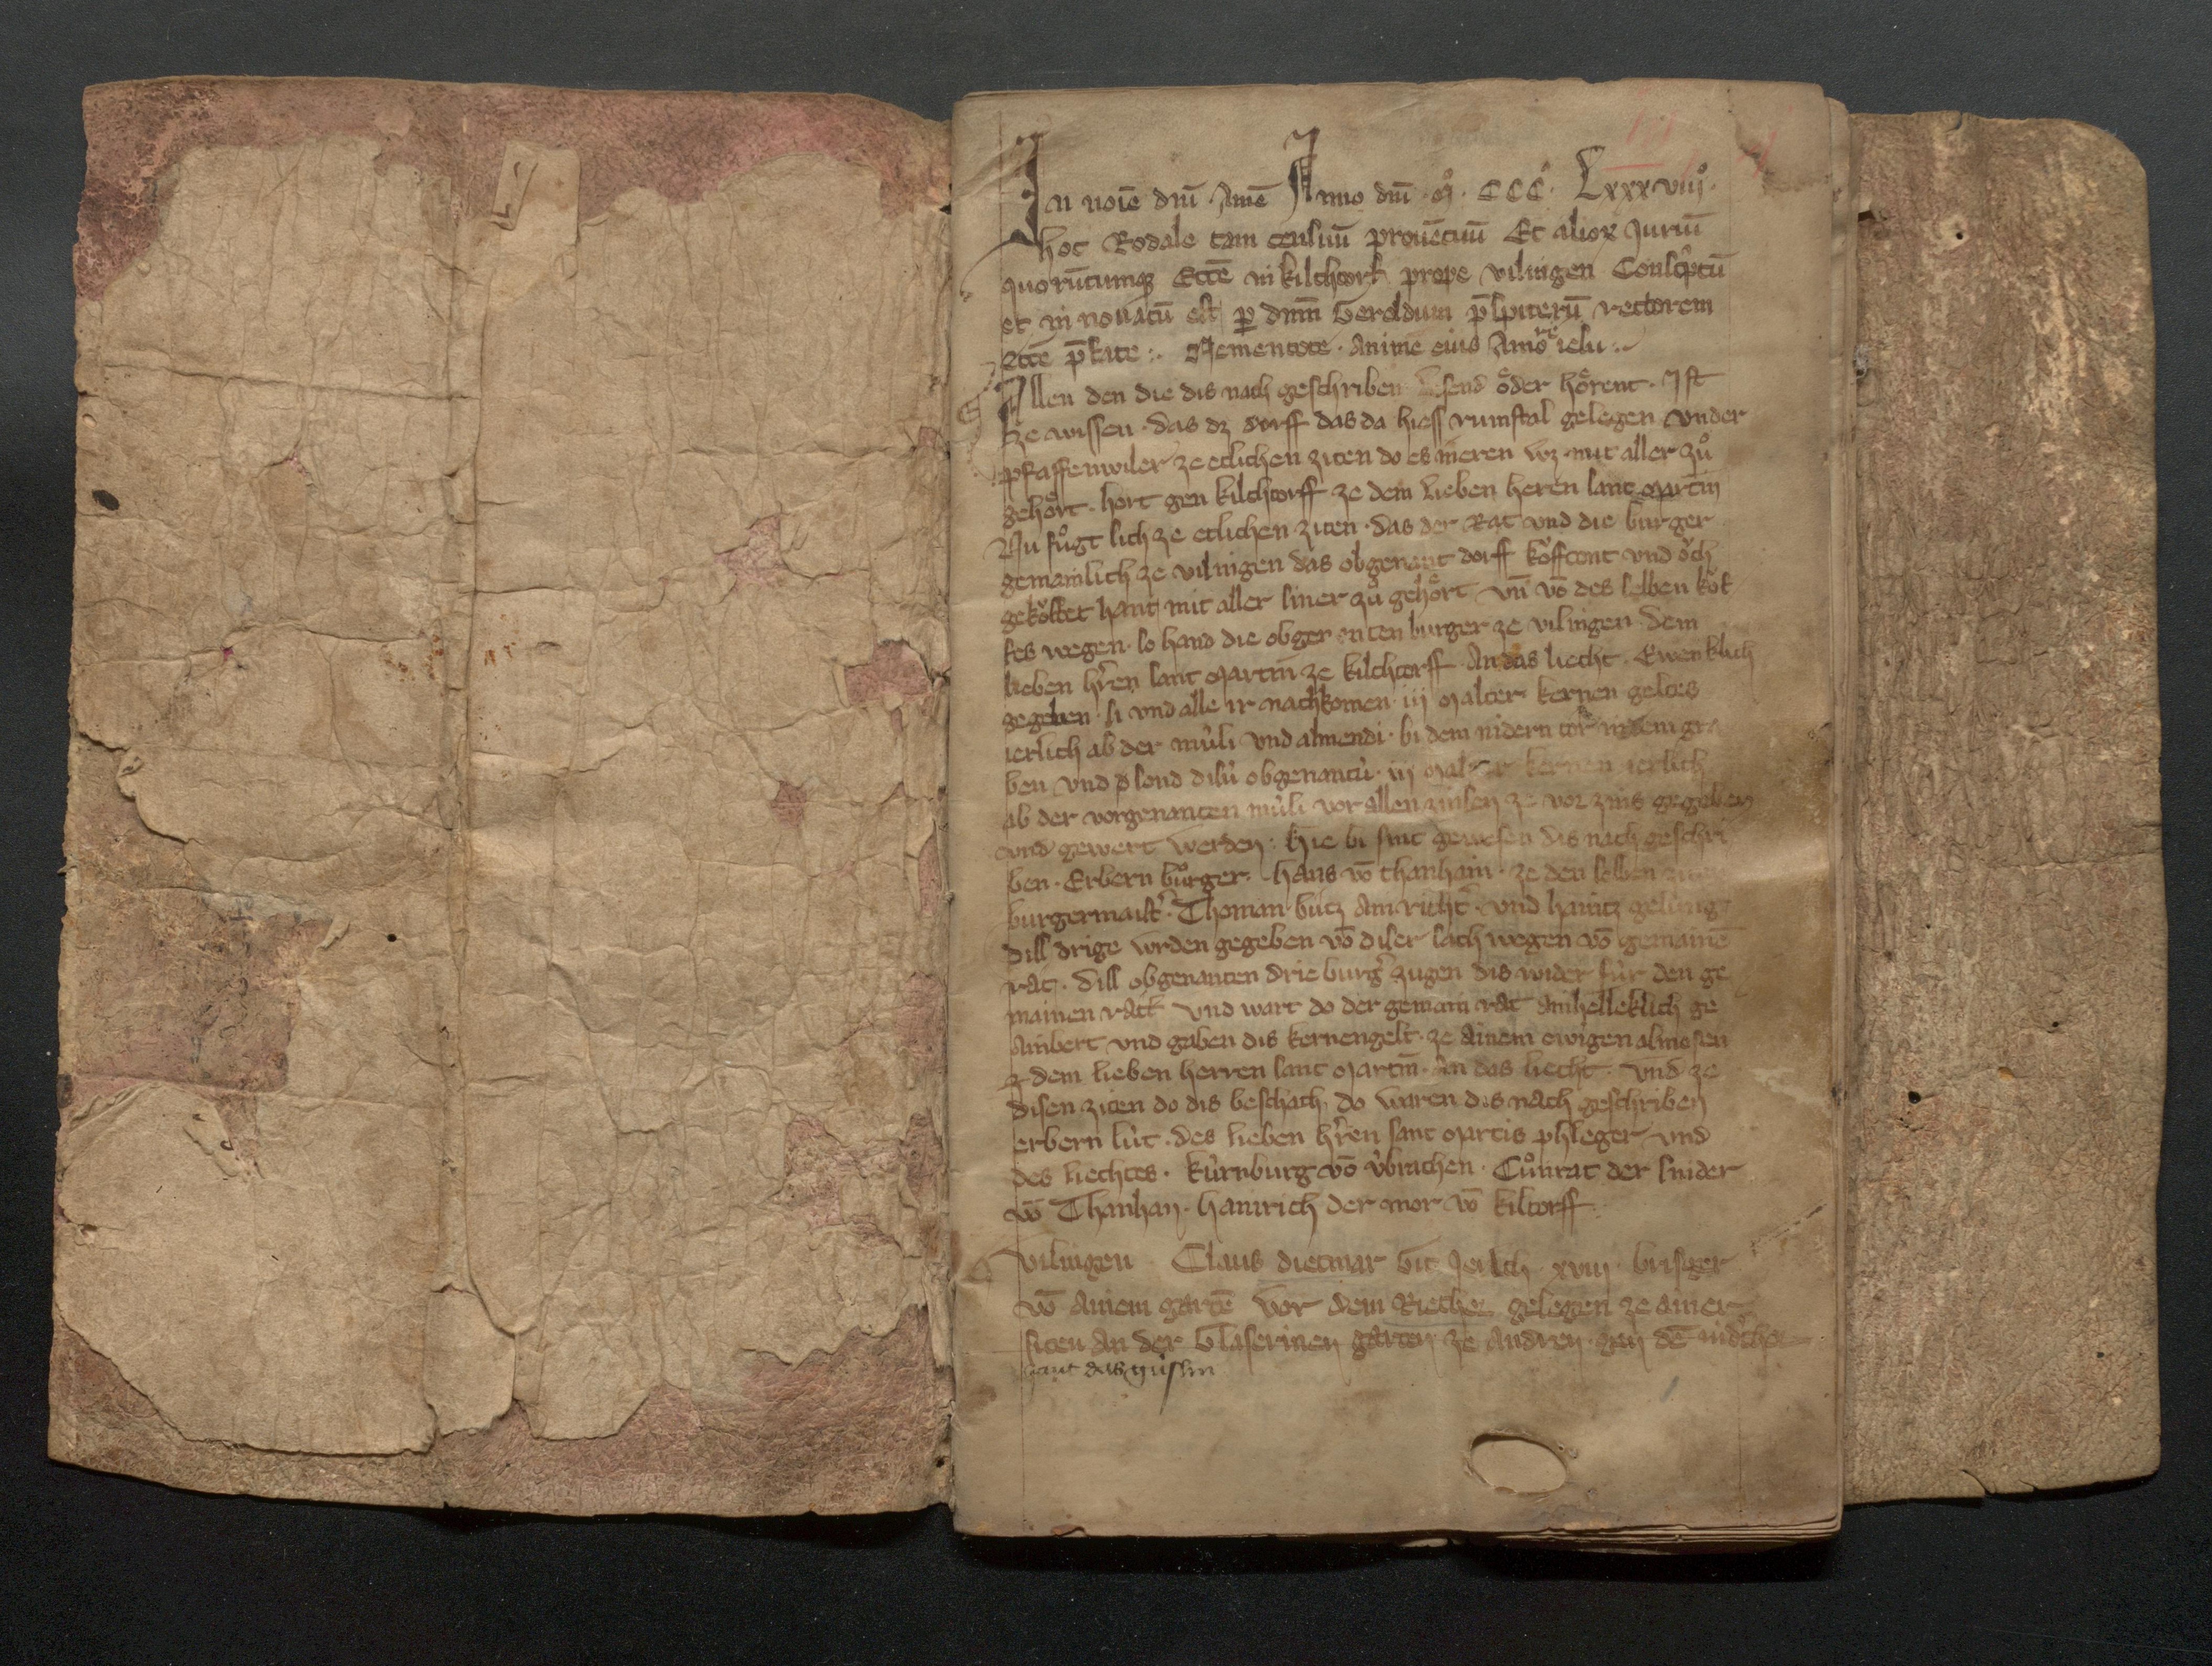 In noīe dnī Amē Anno dnī · M° · CCC° · Lxxxviij°
hoc Rodale tam censuū prouētuū Et alioꝝ Juriū
quorūcumqꝫ Eccē in kilchtorf prope vilingen Conscͥptū
et in nouatū est ꝑ dnm̄ Geroldum p̄sbiterū rectorem
Eccē p̄fate :· Mementote · anime eius Amore iesu :·
Allen den die dis nach geschriben lesend oͤder hoͤrent · Ist
ze wissen · das dz dorff das da hiess rumstal gelegen vnder
pfaffenwiler ze etlichen ziten do es meren wz · mit aller zuͦ
gehoͤrt · hort gen kilchtorff ze dem lieben heren sant Martin
Nu fuͦgt sich ze etlichen ziten · das der Rat vnd die burger
gemainlich ze vilingen das obgenant dorff koͮfftont vnd oͮch
gekoͮffet hant mit aller siner zuͦ gehoͤrt vn̄ vō des selben koͮf
fes wegen · so hand die obgenenten burger ze vilingen dem
lieben hr̄en sant Martin ze kilchtorff · An das liecht · Ewenklich
gegeben · si vnd alle ir nachkomen · iij Malter kernen geltes
ierlich ab der muͤli vnd almendi · bi dem nidern tor in dem gra
ben vnd sond disuͤ obgenantuͤ · iij Malter kernen ierlich
ab der vorgenanten muͤli vor allen zinsen ze vor zins gegeben
vnd gewert werden : Hie bi sint gewesen dis nach geschri
ben · Erbern burger · Hans vō thanhain · ze den selben
burgermaistˀ · Thoman butz Am richtˀ · vnd haintz
diss drige wrden gegeben vō diser sach wegen vō gemainē
rat · diss obgenanten drie burgˀ zugen dis wider fuͤr den ge
mainen ratt vnd wart do der gemain rat Ainhelleklich ge
Ainbert vnd gaben dis kernengelt · ze Ainem ewigen almosen
dem lieben herren sant Martin · An das liecht · vnd ze
disen ziten do dis beschach, do waren dis nach geschriben
erbern luͤt · des lieben hr̄en sant Martis phleger vnd
des liechtes · kuͤrnburg vō vͤbrachen · Cuͦnrat der snider
vō Thanhan · Hainrich der mor vō kiltorff
Vilingen Claus dietmar git Jerlich xviij brisger
vō Ainem gartē vor dem Riethor gelegen ze ainer
siten an der Glaserinen garten ze andren · gen dē